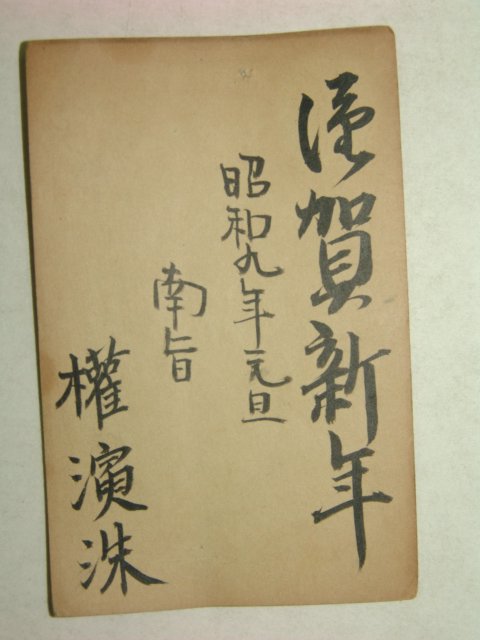 謹賀新年
昭和九年元旦
南旨
權濱洙